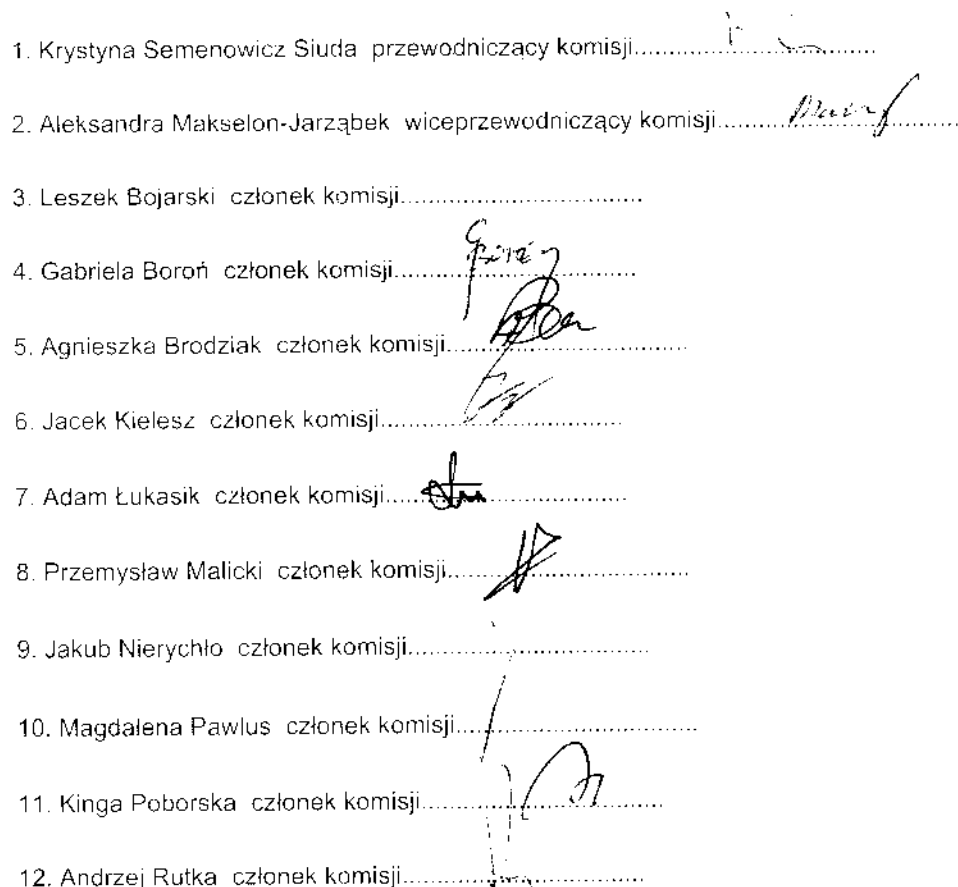 1. Krystyna Semenowicz Siuda przewodniczący komisji
2. Aleksandra Makselon-Jarząbek wiceprzewodniczący komisji
3. Leszek Bojarski członek komisji
4. Gabriela Boroń członek komisji
5. Agnieszka Brodziak członek komisji
6. Jacek Kielesz członek komisji
7. Adam Łukasik członek komisji
8. Przemysław Malicki członek komisji
9. Jakub Nierychło członek komisji
10. Magdalena Pawlus członek komisji
11. Kinga Poborska członek komisji
12. Andrzej Rutka członek komisji